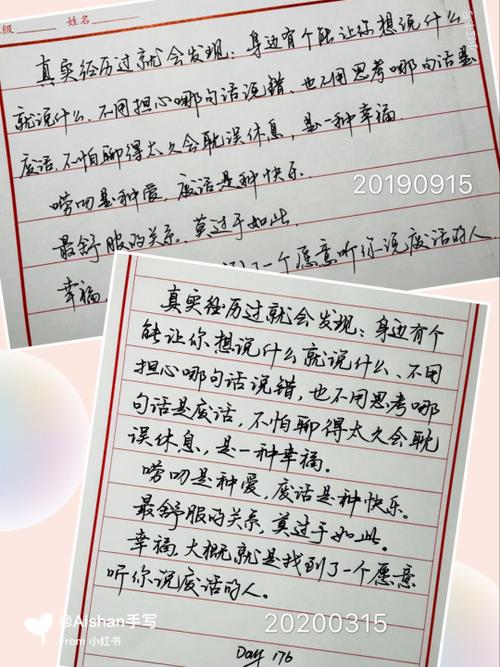 级
姓名
真实经历过就会发现：身边有个能让你想说什么
就说什么、不用担心哪句话说错、也不用思考哪句话是
废话、不怕聊得太久会耽误休息，是一种幸福
唠叨是种爱，废话是种快乐.
最舒服的关系、莫过于如此.
幸福.
到了一个愿意听你说废话的人
20190915
真实经历过就会发现：身边有个
能让你想说什么就说什么、不用
担心哪句话说错，也不用思考哪
句话是废话，不怕聊得太久会耽
误休息，是一种幸福。
唠叨是种爱，废话是种快乐。
最舒服的关系，莫过于如此。
幸福，大概就是找到了一个愿意
听你说废话的人。
20200315
Day 176
@Aishan手写
From 小红书